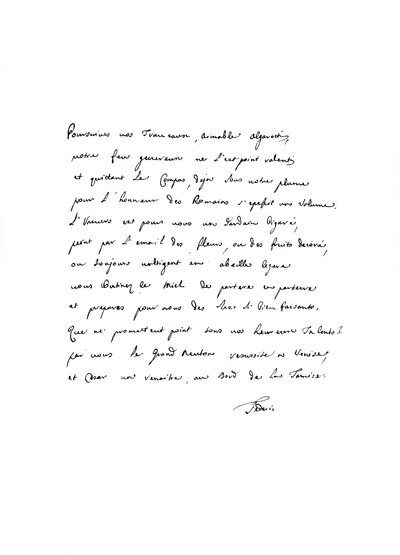 Poursuives vos Traveaux, aimable algarotti,
votre feu genereux ne s'est point ralenti
et quidant Le Compas, deja sous votre plume
pour L'honneur des Romains s'epessit une Volume.
L'Univers est pour vous un Jardain bigaré,
peint par L'email des fleurs, ou des fruits decoré,
ou toujours voltigent en abeille legere
vous butinez Le Miel de parterre en parterre
et preparez pour nous des bienfaisants.
Que ne promettent point tous vos heureux Talents?
par vous Le Grand Neuton resussite a Venise,
et Cesar va renaitre, au Bord de La Tamise.
Federic